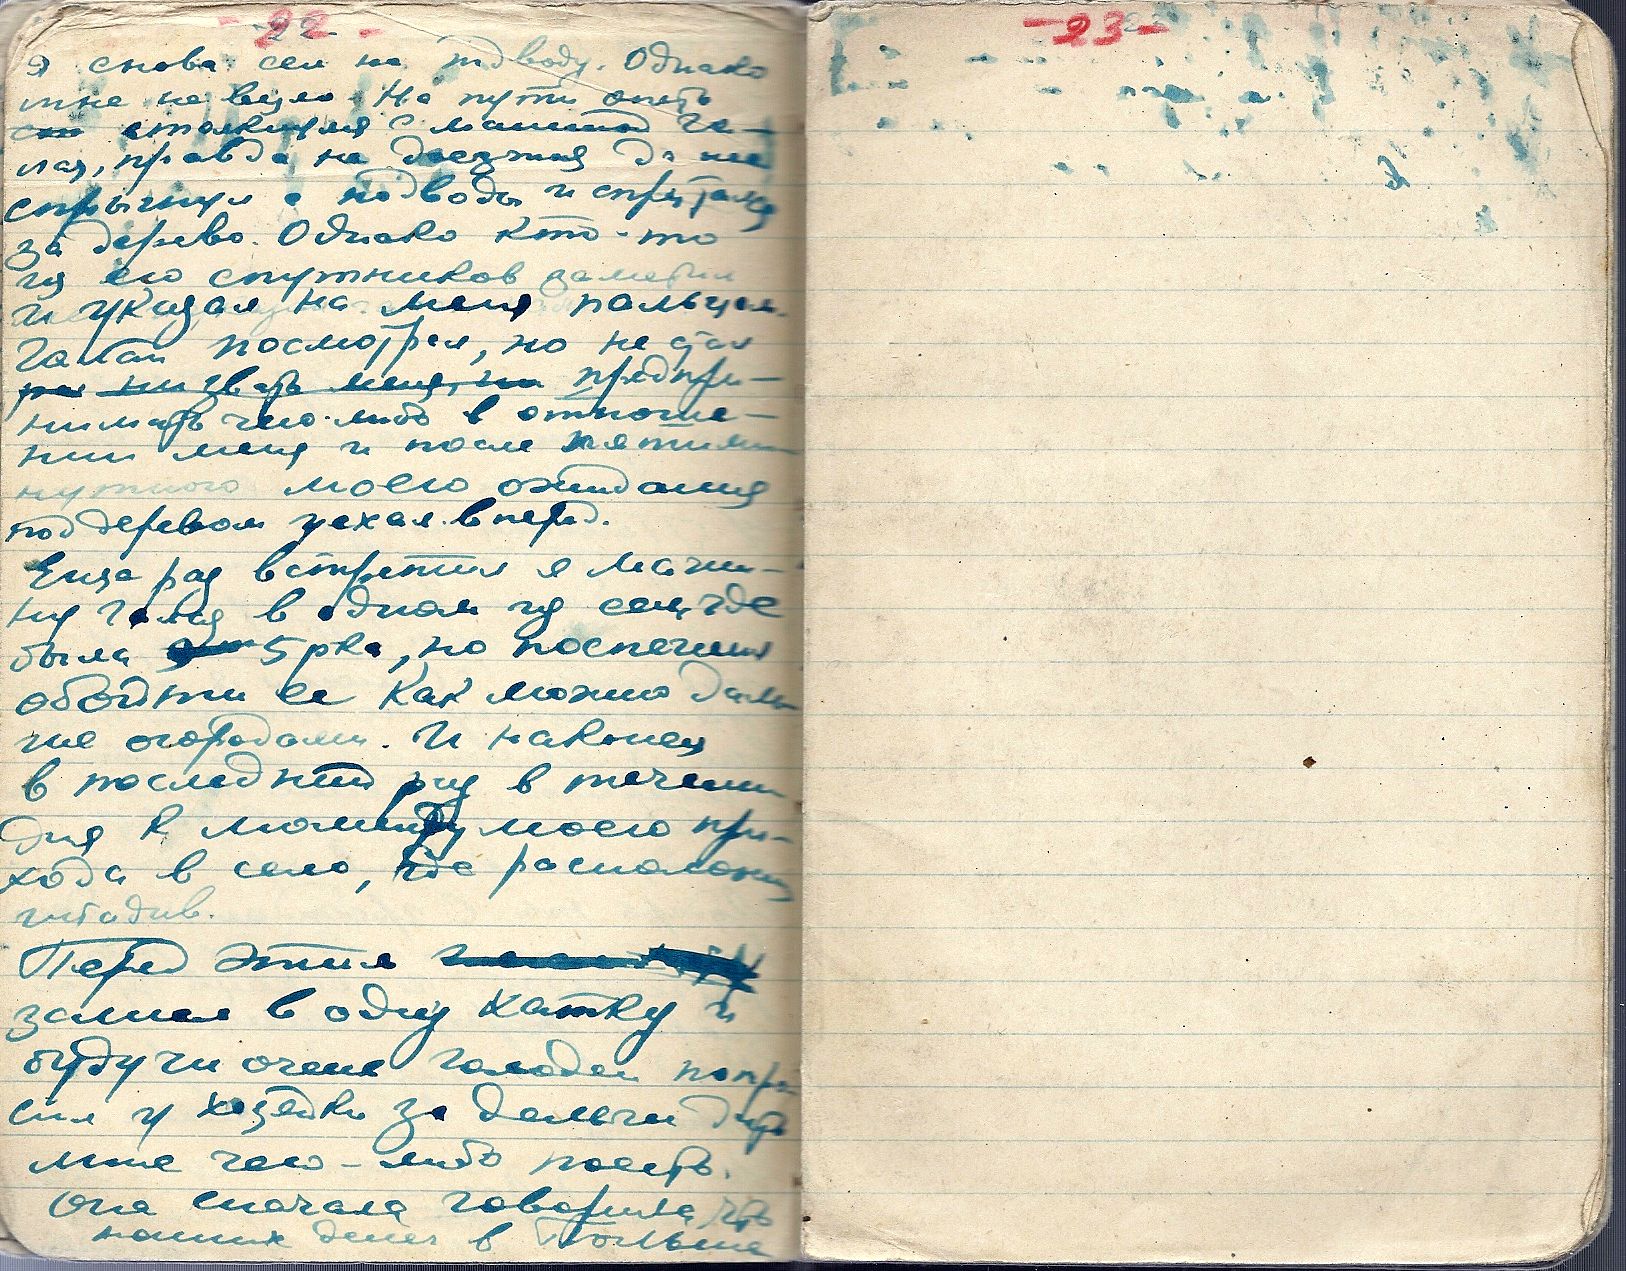 -22-
я снова сел на подводу. Однако
мне не везло. На пути опять
столкнулся с машиной Га-
лая, правда не доезжая до нее
спрыгнул с подводы и спрятался
за дерево. Однако кто-то
из его спутников заметил
и указал на меня пальцем.
Галай посмотрел, но не стал
ни звать меня, ни предпри-
нимать чего-либо в отноше-
нии меня и после пятими-
нутного моего ожидания
под деревом уехал вперед.
Еще раз встретил я маши-
ну Галая в одном из сел, где
была 5 рва, но поспешил
обойти ее как можно даль-
ше огородами. И наконец
в последний раз в течении
дня к моменту моего при-
хода в село, где расположен
штадив.
Перед этим
зашел в одну хатку и
будучи очень голоден попро-
сил у хозяйки за деньги дать
мне чего-либо поесть.
Она сначала говорила, что
наших денег в Польше
-23-